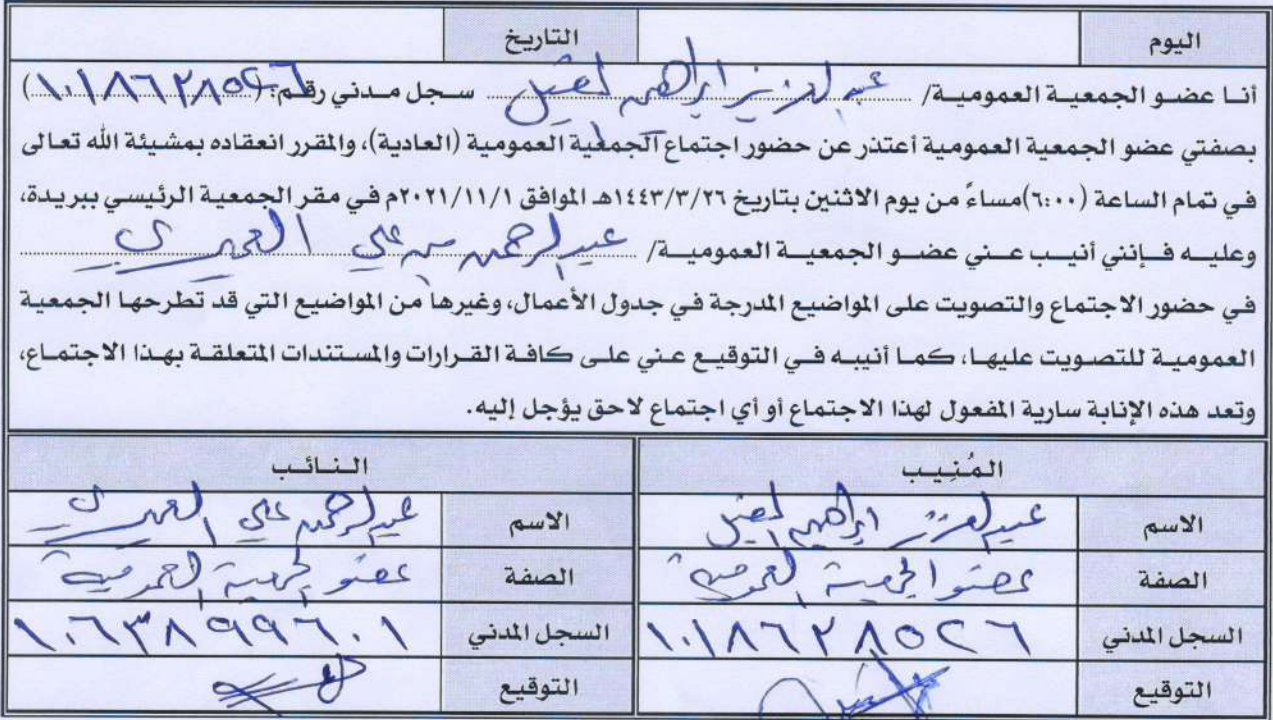 اليوم التاريخ
أنا عضو الجمعية العمومية/ عبدالعزيز ابراهيم سجل مدني رقم: (١٠١٨٦٢٨٥٢٦)
بصفتي عضو الجمعية العمومية أعتذر عن حضور اجتماع الجمعية العمومية (العادية)، والمقرر انعقاده بمشيئة الله تعالى
في تمام الساعة (٦:٠٠)مساءً من يوم الاثنين بتاريخ ١٤٤٣/٣/٢٦هـ الموافق ٢٠٢١/١١/١م في مقر الجمعية الرئيسي ببريدة،
وعليه فإنني أنيب عني عضو الجمعية العمومية/ عبدالرحمن بن علي
في حضور الاجتماع والتصويت على المواضيع المدرجة في جدول الأعمال، وغيرها من المواضيع التي قد تطرحها الجمعية
العمومية للتصويت عليها، كما أنيبه في التوقيع عني على كافة القرارات والمستندات المتعلقة بهذا الاجتماع،
وتعد هذه الإنابة سارية المفعول لهذا الاجتماع أو أي اجتماع لاحق يؤجل إليه.
المُنِيب النائب
الاسم عبدالعزيز ابراهيم الاسم عبدالرحمن علي
الصفة عضو الجمعية العمومية الصفة عضو الجمعية العمومية
السجل المدني ١٠١٨٦٢٨٥٢٦ السجل المدني ١٠٦٣٨٩٩٦٠١
التوقيع التوقيع